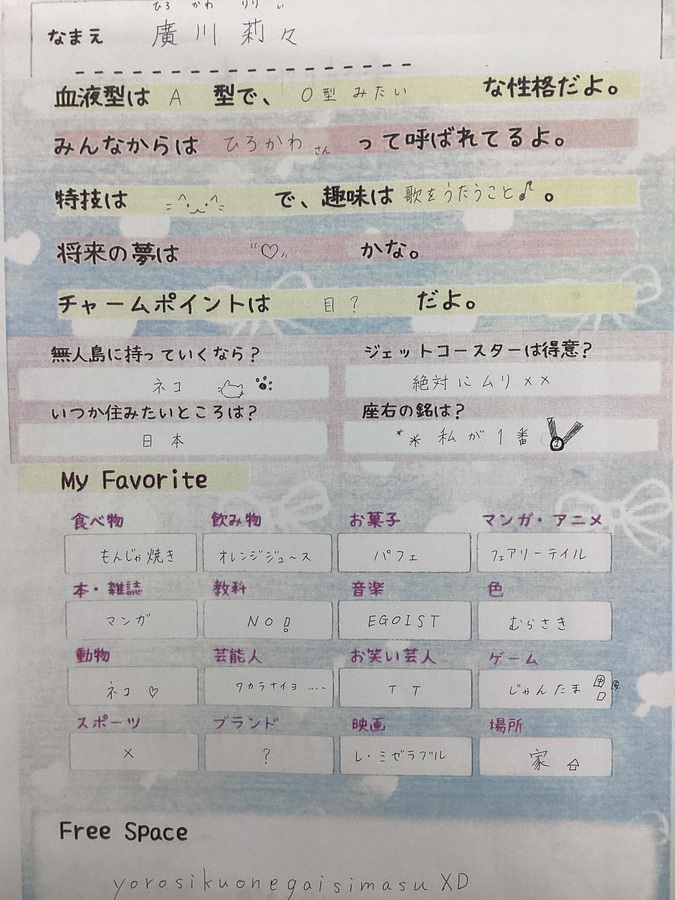 ひろ かわ りり い
なまえ 廣川 莉々
血液型は A 型で、 O型 みたい な性格だよ。
みんなからは ひろかわ さん って呼ばれてるよ。
特技は =^._.^= で、趣味は 歌をうたうこと♪ 。
将来の夢は "♡" かな。
チャームポイントは 目? だよ。
無人島に持っていくなら? ジェットコースターは得意?
ネコ 絶対にムリ××
いつか住みたいところは? 座右の銘は?
日本 ** 私が1番
My Favorite
食べ物 飲み物 お菓子 マンガ・アニメ
もんじゃ焼き オレンジジュ~ス パフェ フェアリーテイル
本・雑誌 教科 音楽 色
マンガ NO! EGOIST むらさき
動物 芸能人 お笑い芸人 ゲーム
ネコ♡ ワカラナイヨ ···· TT じゃんたま
スポーツ ブランド 映画 場所
× ? レ・ミゼラブル 家
Free Space
yorosikuonegaisimasu XD